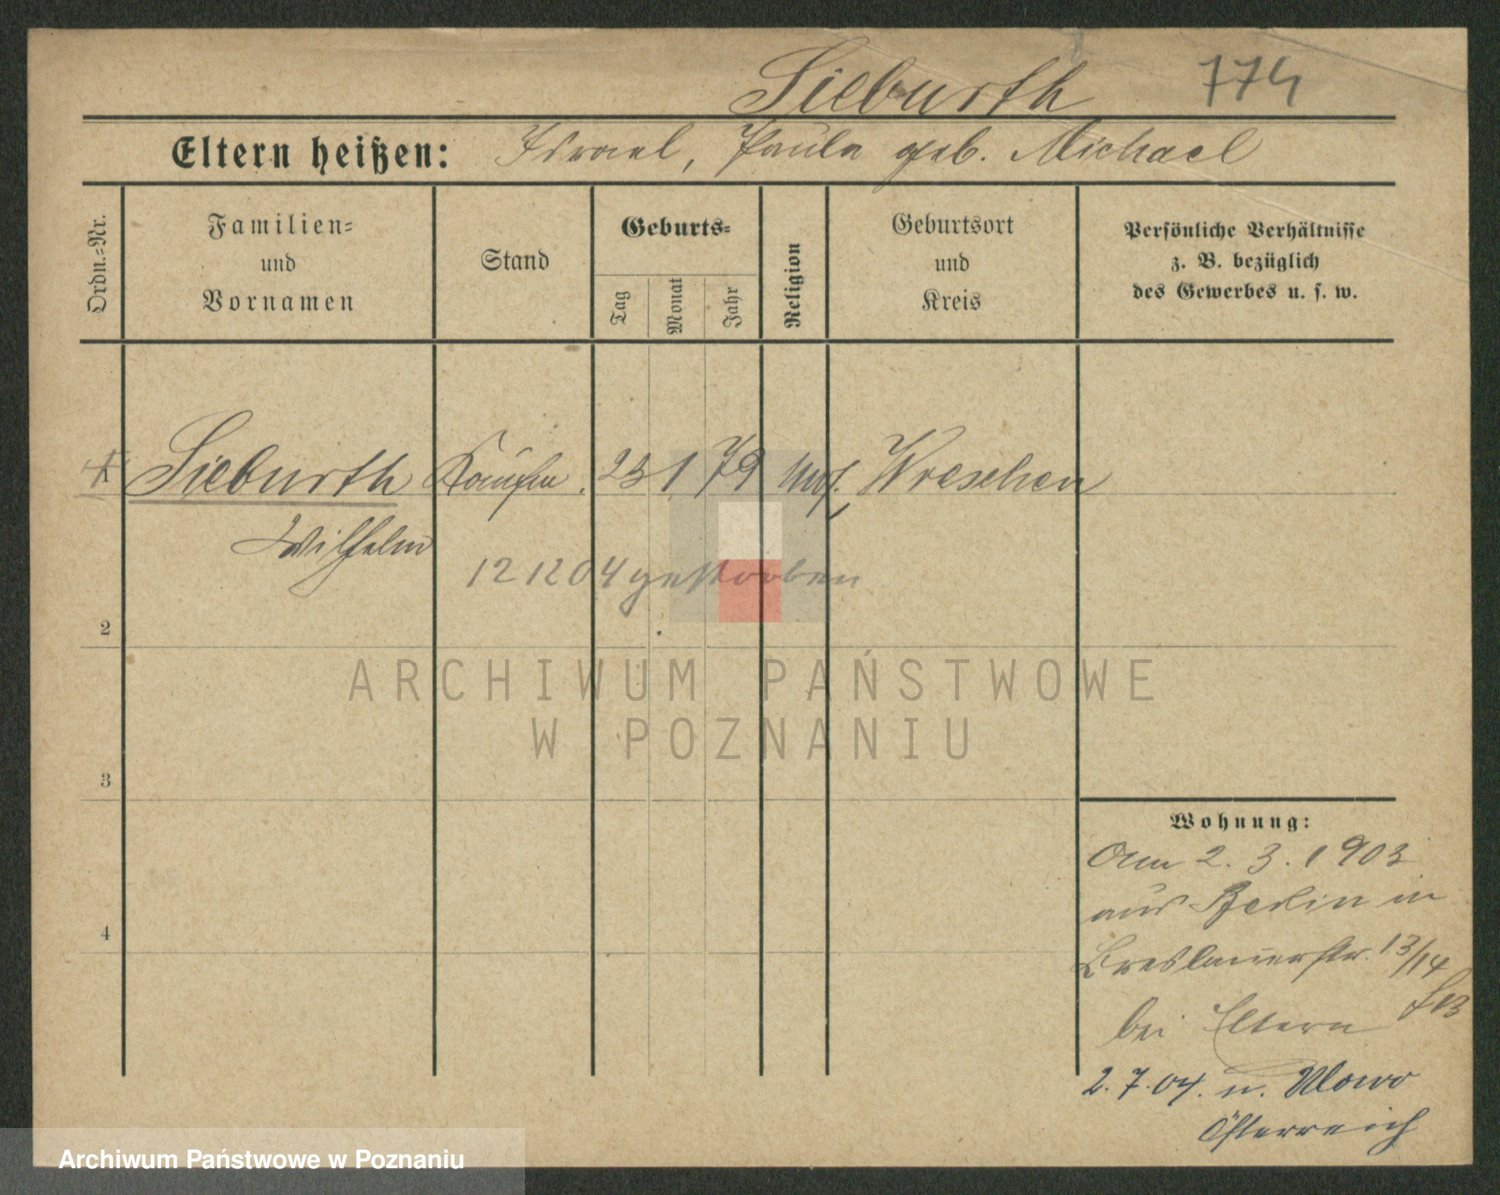 Sieburth 774
Eltern heißen: Israel, Paula geb. Michael
Ordn.=Nr.
Familien=
und
Vornamen
Stand
Geburts=
Tag
Monat
Jahr
Religion
Geburtsort
und
Kreis
Persönliche Verhältnisse
z. B. bezüglich
des Gewerbes u. s. w.
1 Sieburth Kaufm. 23 1 79 mos. Wreschen
Wilhelm
12 12 04 gestorben
2
ARCHIWUM PAŃSTWOWE
W POZNANIU
3
Wohnung:
Am 2. 3. 1903
aus Berlin in
4
Breslauerstr. 13/14
bei Eltern
2. 7. 04. n.
Österreich
Archiwum Państwowe w Poznaniu